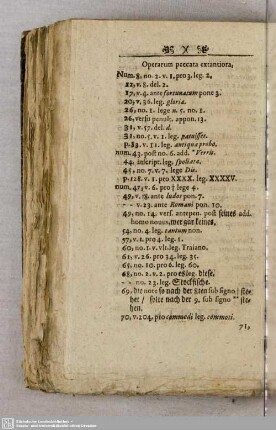 X
Operarum peccata extantiora,
Num. 8. no. 2. v. 1. pro 3. leg. 2.
12, v. 8. del. 2.
17, v. 4. ante fortunatum pone 3.
20, v. 56. leg. gloria.
26, no. 1. lege n. 5. no. 1.
26, versu penult. appon. 13.
31, v. 57. del. d.
31, no. 5. v. 1. leg. patuisset.
p. 83. v. 11. leg. antiqua probo.
num. 43. post no. 6. add. * Verris.
44. inscript. leg. spoliata.
45, no. 7. v. 7. lege Die.
p. 128. v. 1. pro XXXX. leg. XXXXV.
num. 47, v. 6. pro † lege 4.
49, v. 18. ante ludos pon. 7.
-- v. 23. ante Romani pon. 10.
49, no. 14. vers. antepen. post seines add.
homo nouus, wer gar keines,
54, no. 4. leg. tantum non.
57, v. 1. pro 4. leg. 1.
60, no. 1. v. vlt. leg. Traiano.
61, v. 26. pro 34. leg. 35.
65, no. 10. pro 6. leg. 60.
68, no. 2. v. 2. pro es leg. diese.
-- no. 23. leg. Stockfische.
69, die note so nach der 8ten sub signo / ste-
het / solte nach der 9. sub signo ** ste-
hen.
70, v. 204. pro commodi leg. commoti.
71,